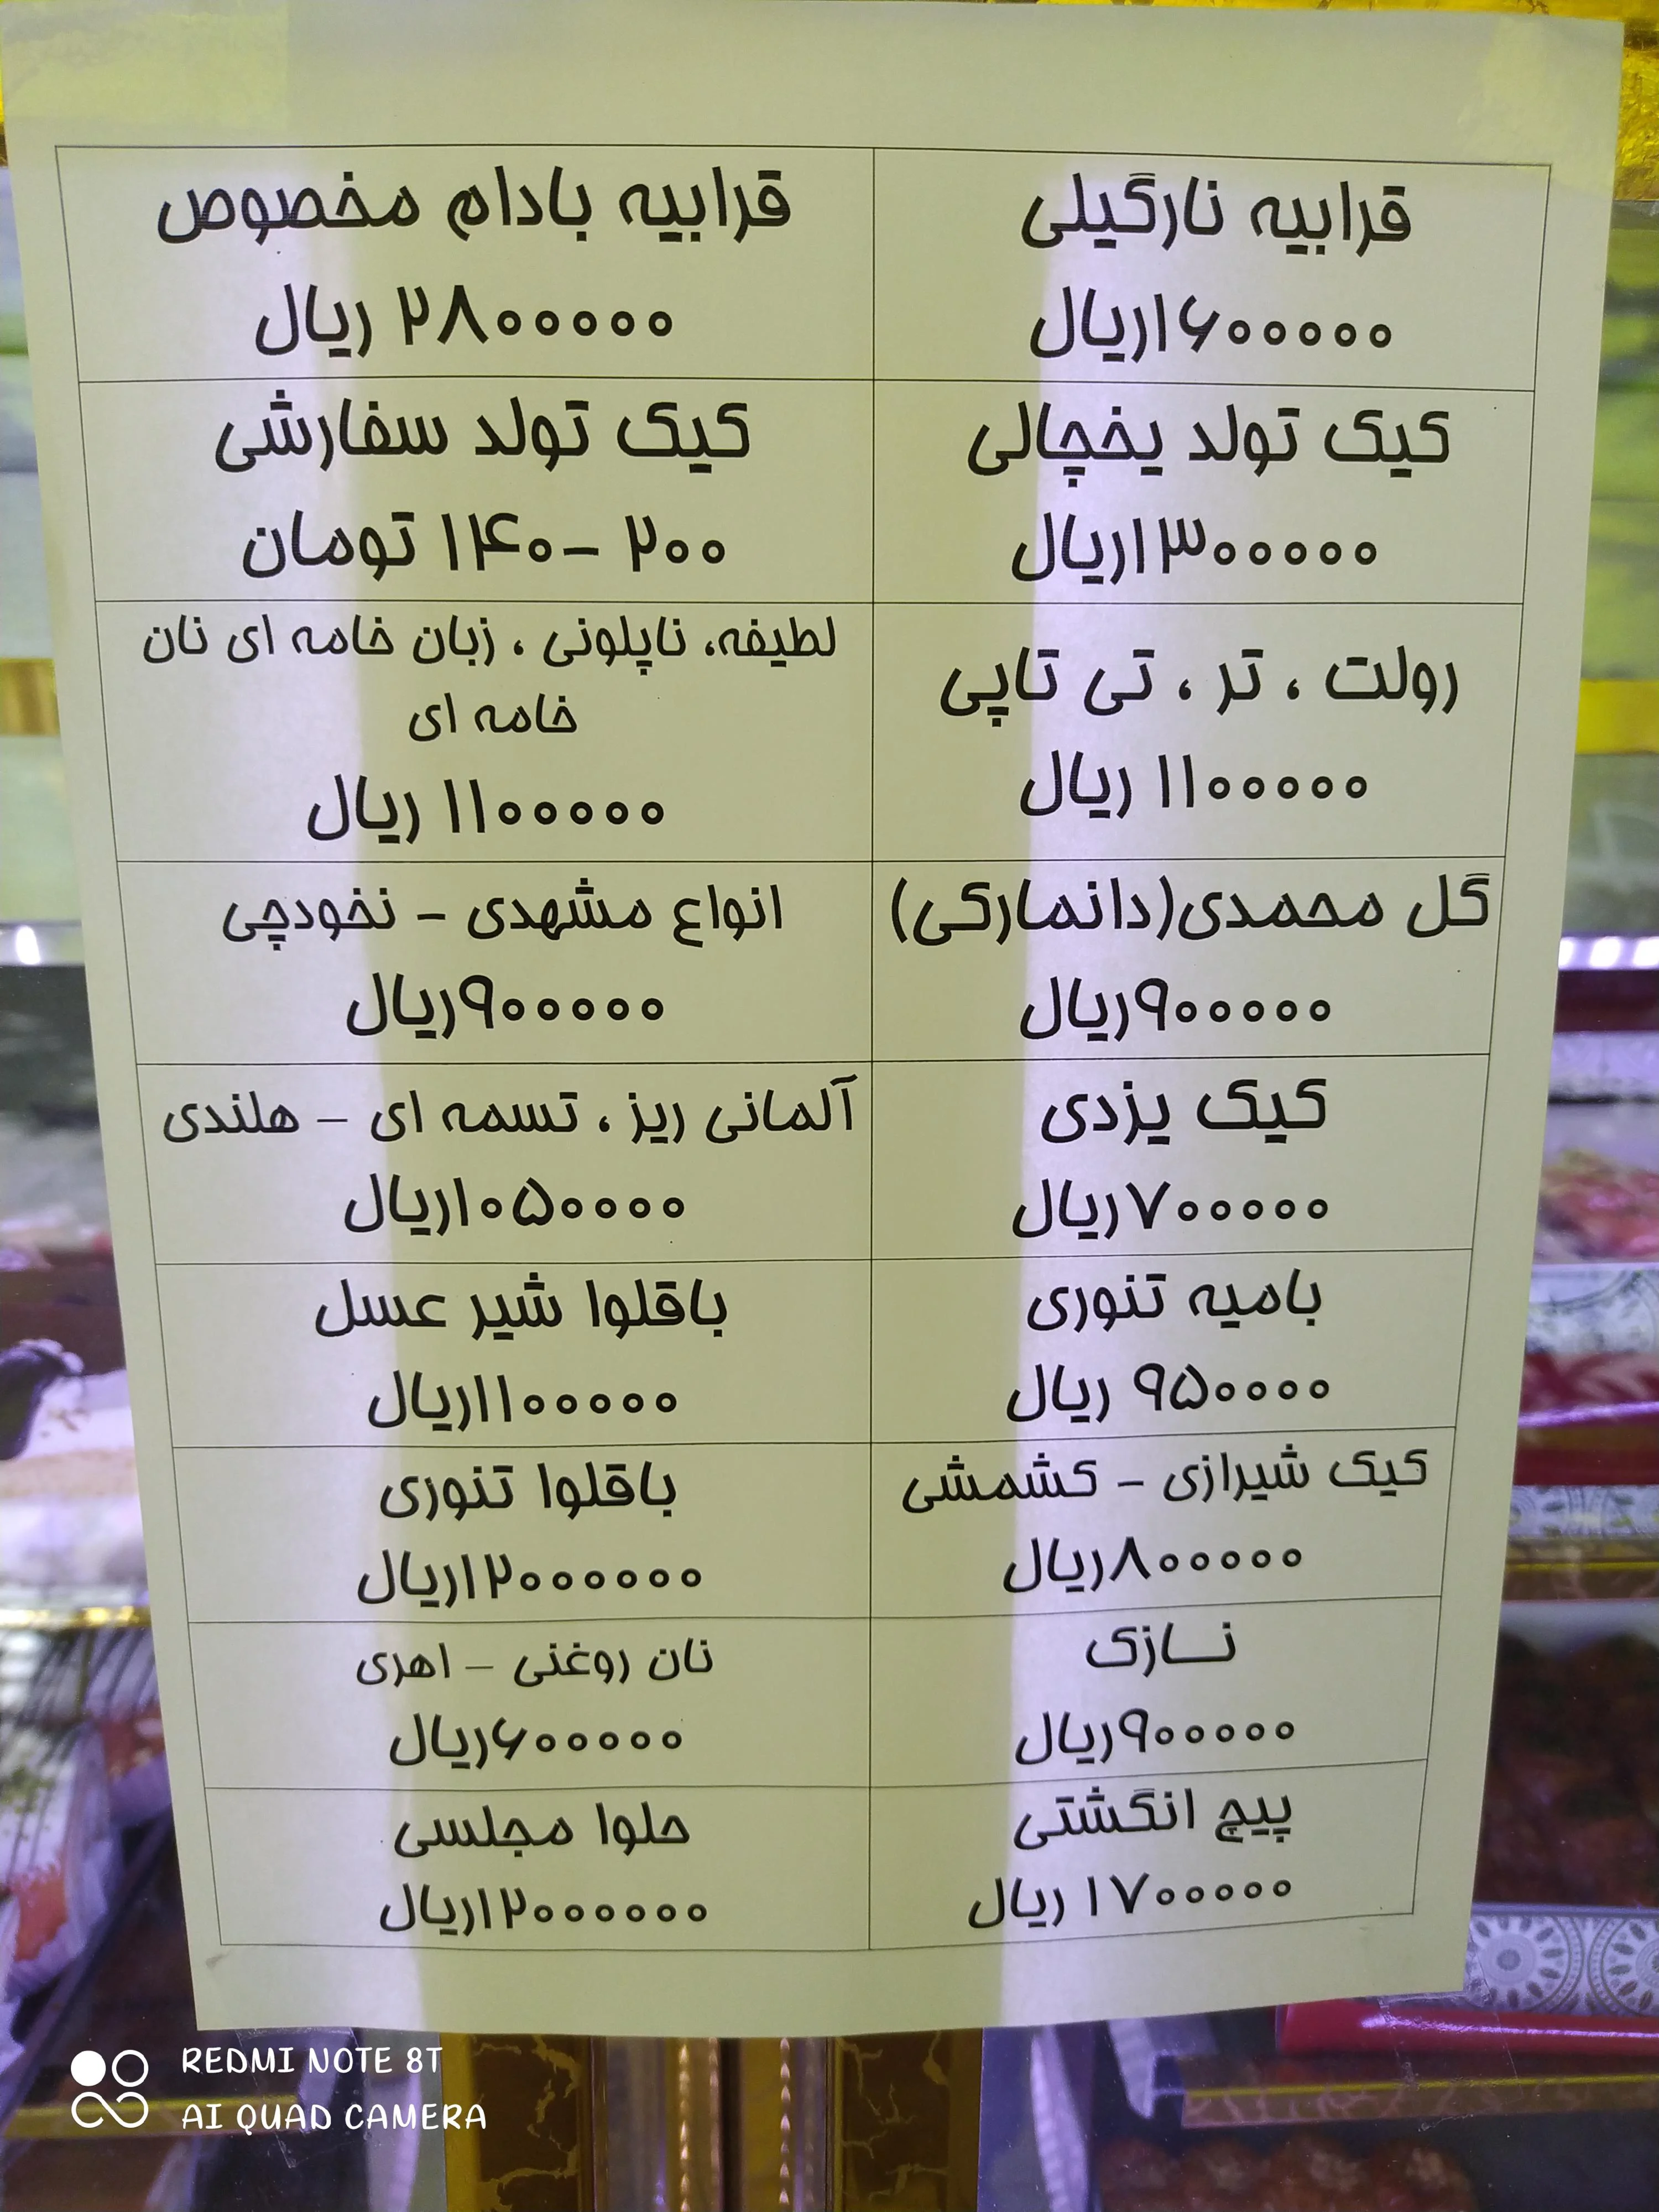 قرابیه نارگیلی
۱۶۰۰۰۰۰ریال
قرابیه بادام مخصوص
۲۸۰۰۰۰۰ ریال
کیک تولد یخچالی
۱۳۰۰۰۰۰ریال
کیک تولد سفارشی
۲۰۰ -۱۴۰ تومان
رولت ، تر ، تی تاپی
۱۱۰۰۰۰۰ ریال
لطیفه، ناپلونی ، زبان خامه ای نان
خامه ای
۱۱۰۰۰۰۰ ریال
گل محمدی(دانمارکی)
۹۰۰۰۰۰ریال
انواع مشهدی - نخودچی
۹۰۰۰۰۰ریال
کیک یزدی
۷۰۰۰۰۰ریال
آلمانی ریز ، تسمه ای - هلندی
۱۰۵۰۰۰۰ریال
بامیه تنوری
۹۵۰۰۰۰ ریال
باقلوا شیر عسل
۱۱۰۰۰۰۰ریال
کیک شیرازی - کشمشی
۸۰۰۰۰۰ریال
باقلوا تنوری
۱۲۰۰۰۰۰۰ریال
نـــازک
۹۰۰۰۰۰ریال
نان روغنی - اهری
۶۰۰۰۰۰ریال
پیچ انگشتی
۱۷۰۰۰۰۰ ریال
حلوا مجلسی
۱۲۰۰۰۰۰۰ریال
REDMI NOTE 8T
AI QUAD CAMERA